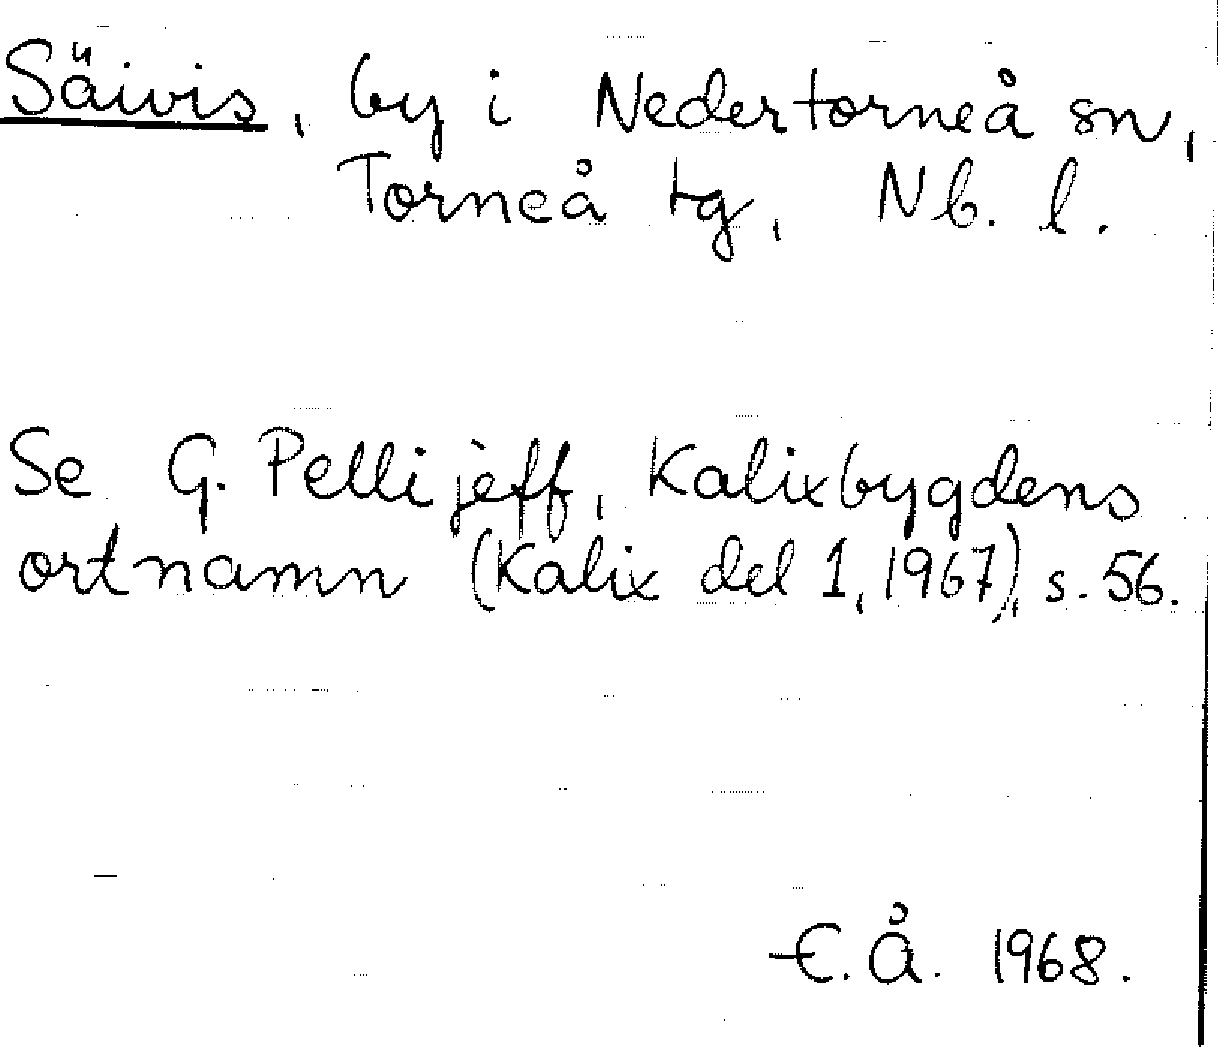 Säivis, by i Nedertorneå sn,
Torneå tg, Nb. l.
Se G. Pellijeff, Kalixbygdens
ortnamn (Kalix del 1, 1967), s. 56.
E. Å. 1968.